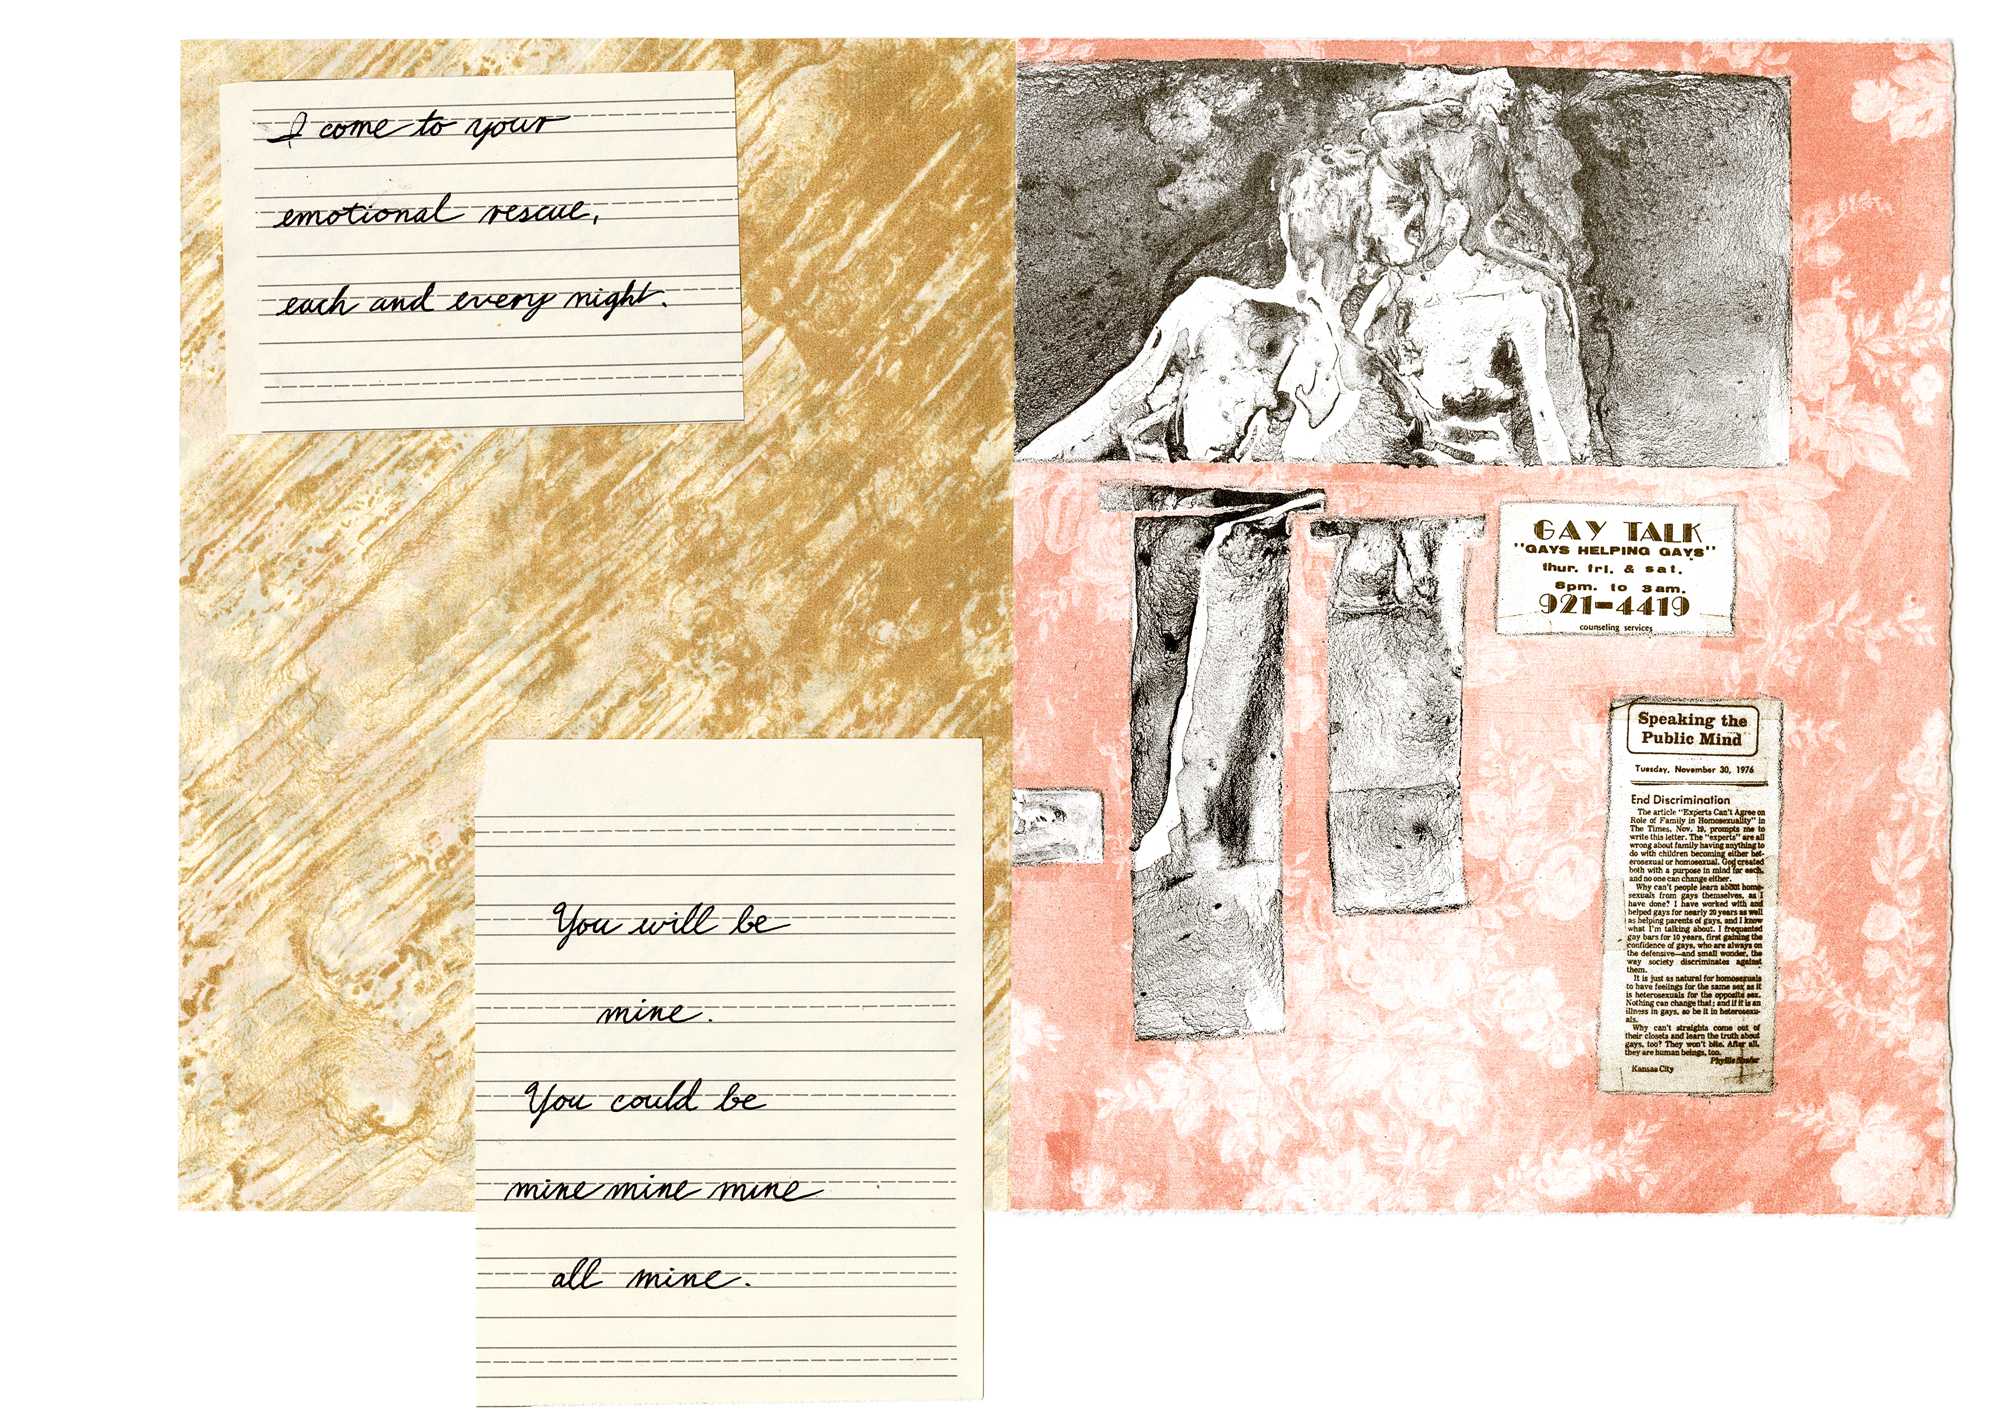 I come to your
emotional rescue,
each and every night.
You will be
mine.
You could be
mine mine mine
all mine.
GAY TALK
"GAYS HELPING GAYS"
thur. fri. & sat.
8pm. to 3am.
921-4419
counseling services
Speaking the
Public Mind
Tuesday, November 30, 1976
End Discrimination
The article "Experts Can't Agree on
Role of Family in Homosexuality" in
The Times, Nov. 19, prompts me to
write this letter. The "experts" are all
wrong about family having anything to
do with children becoming either het-
erosexual or homosexual. God created
both with a purpose in mind for each,
and no one can change either.
Why can't people learn about homo-
sexuals from gays themselves, as I
have done? I have worked with and
helped gays for nearly 20 years as well
as helping parents of gays, and I know
what I'm talking about. I frequented
gay bars for 10 years, first gaining the
confidence of gays, who are always on
the defensive—and small wonder, the
way society discriminates against
them.
It is just as natural for homosexuals
to have feelings for the same sex as it
is heterosexuals for the opposite sex.
Nothing can change that; and if it is an
illness in gays, so be it in heterosexu-
als.
Why can't straights come out of
their closets and learn the truth about
gays, too? They won't bite. After all,
they are human beings, too.
Phyllis Shafer
Kansas City